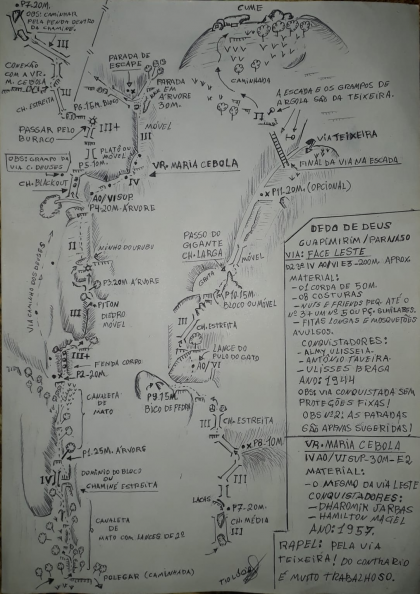 P7.20M.
OBS: CAMINHAR
PELA FENDA DENTRO
DA CHAMINÉ.
III
CONEXÃO
COM A VR. M.
CEBOLA
CH. ESTREITA
III
P6.15M. BICOS
PASSAR PELO
BURACO
III+
III
MÓVEL
PLATÔ MOVEL
P5.10M.
IV
VR. MARIA CEBOLA
PARADA DE
ESCAPE
PARADA
EM A
ÁRVORE
30M.
OBS: GRAMPO DA
VIA C. DEUSES
CH. BLACKOUT
A0/VISUP.
P4-20M. ÁRVORE
II
NINHO DURUBU
III
P3.20M ÁRVORE
PITON
DIEDRO
MOVEL
III
VIA CAMINHO DOS DEUSES
III+
FENDA CORPO
P2-20M.
CANALETA
DE MATO
P1.25M. ÁRVORE
IV
DOMINIO DO BLOCO
OU
CHAMINÉ ESTREITA
CANALETA
DE
MATO COM LANCES DE 2º
POLEGAR (CAMINHADA)
CUME
CAMINHADA
A ESCADA E OS GRAMPOS DE
ARGOLA SÃO DA TEIXEIRA.
II
VIA TEIXEIRA
FINAL DA VIA NA ESCADA
P11-20M. (OPCIONAL)
PASSO DO
GIGANTE
CH. LARGA
GRUTA
MÓVEL
III
P10.15M.
BLOCO OU MÓVEL
III
CH. ESTREITA
LANCE DO
PULO DO GATO
A0/VI
P9.15M.
BICO DE PEDRA
CH ESTREITA
III
P8.10M
III
LACAS
P7-20M.
CH. MÉDIA
III
DEDO DE DEUS
GUAPIMIRIM/PARNASO
VIA: FACE LESTE
MATERIAL:
- 01 CORDA DE 50M.
- 08 COSTURAS
- FITAS LONGAS E MOSQUETÕES
AVULSOS.
CONQUISTADORES:
- ALMY ULISSEIA.
- ANTÔNIO TAVEIRA.
- ULISSES BRAGA
ANO: 1944
OBS: VIA CONQUISTADA SEM
PROTEÇÕES FIXAS!
OBS Nº2: AS PARADAS
SÃO APENAS SUGERIDAS!
VR. MARIA CEBOLA
IV A0/VISUP-30M-E2
MATERIAL:
- O MESMO DA VIA LESTE
CONQUISTADORES:
- DHAROMIR JARBAS
- HAMILTON MACIEL
ANO: 1957.
RAPEL: PELA VIA
TEIXEIRA! DO CONTRARIO
É MUITO TRABALHOSO.